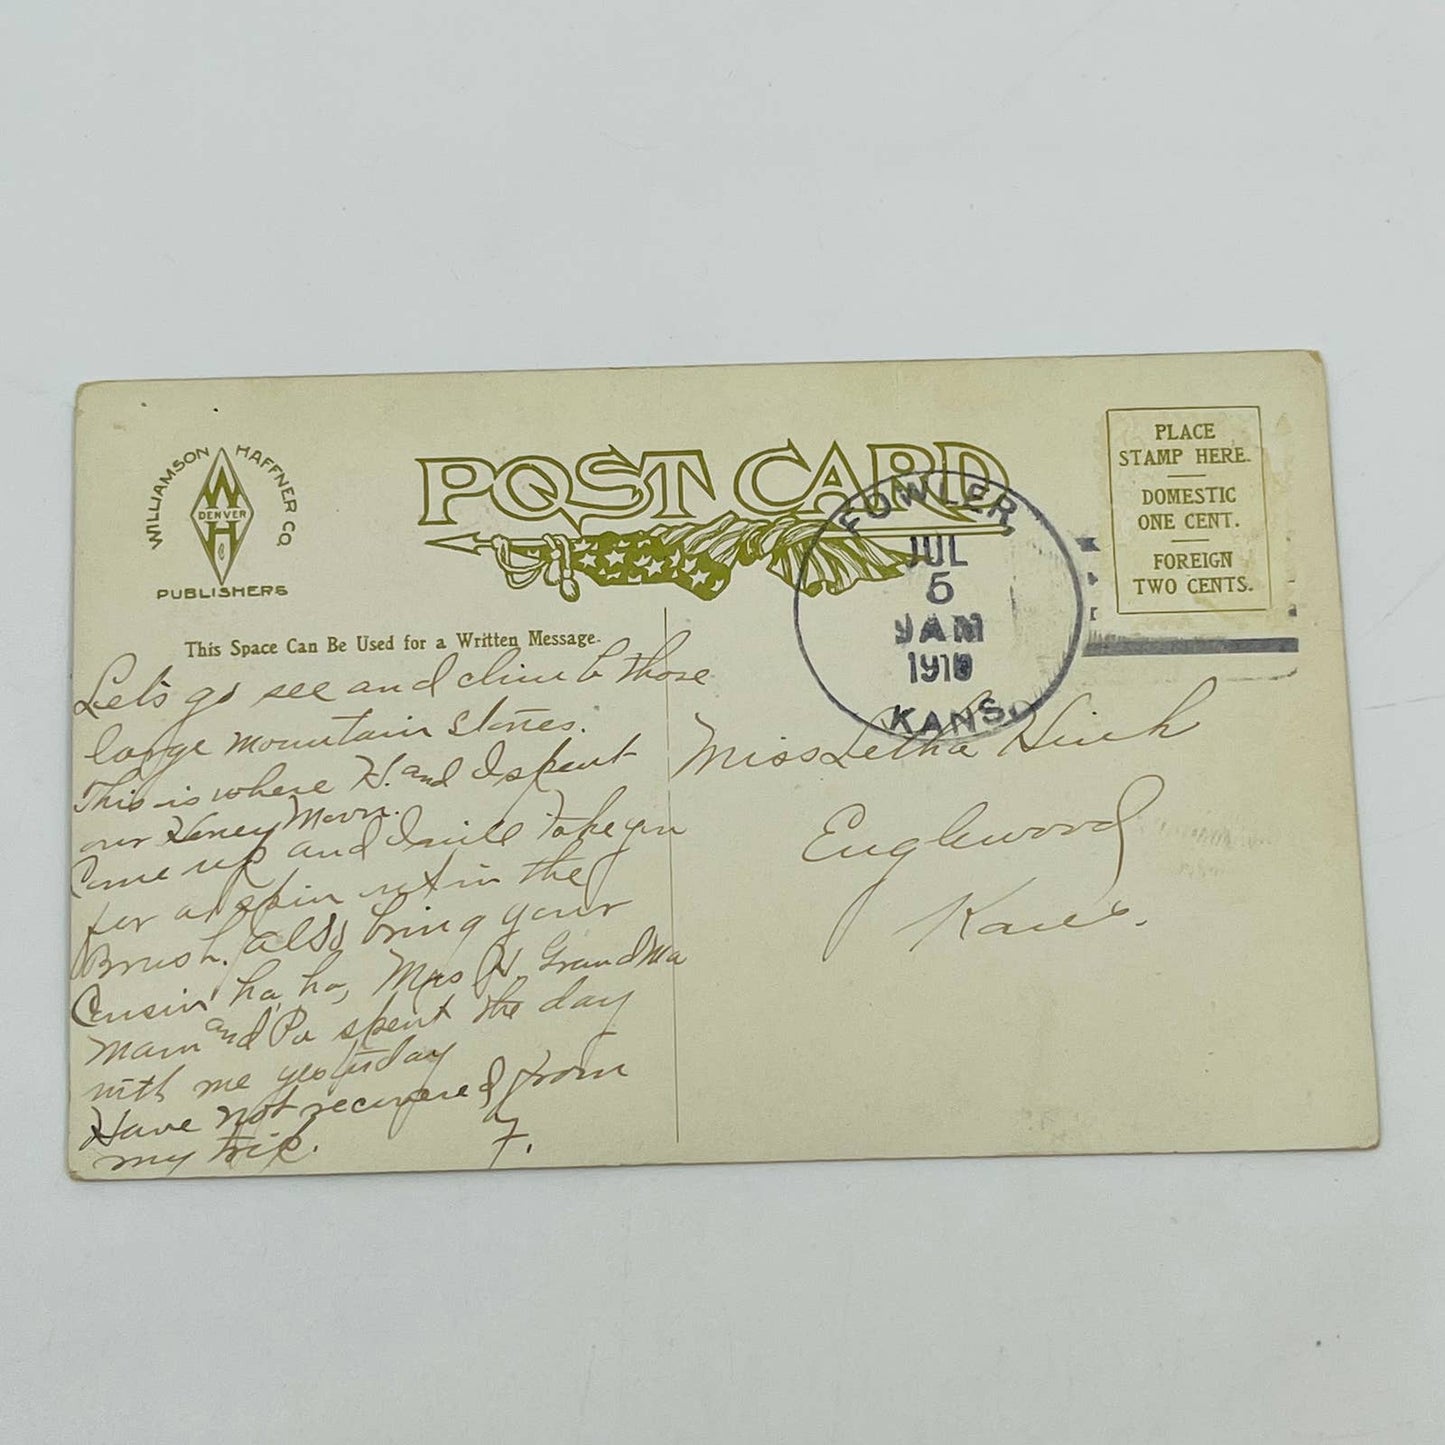 WILLIAMSON HAFFNER CO
W
DENVER
H
PUBLISHERS
POST CARD
PLACE
STAMP HERE.
DOMESTIC
ONE CENT.
FOREIGN
TWO CENTS.
FOWLER,
JUL
5
9 AM
1910
KANS.
This Space Can Be Used for a Written Message.
Let's go see and climb those
large mountain stones.
This is where H. and I spent
our Honey Moon.
Come up and I will take you
for a spin out in the
Brush. also bring your
Cousin' ha, ha, Mrs H. GrandMa
Mam and Pa spent the day
with me yesterday
Have not recovered from
my trip. F.
Miss Letha Hinh
Englewood
Kans.